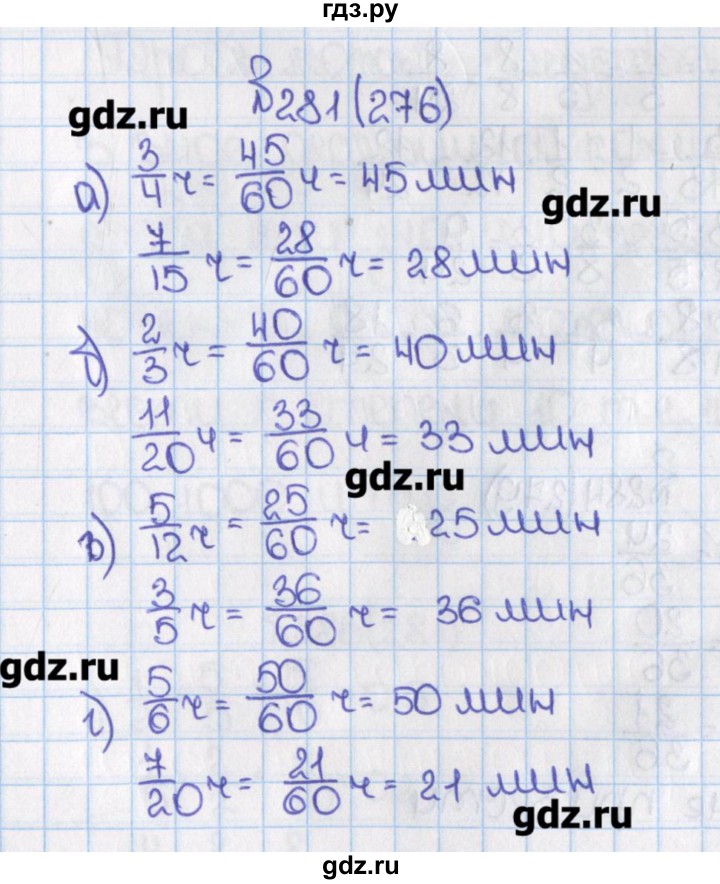 гдз.ру
№281(276)
gdz.ru
а) 3/4 ч = 45/60 ч = 45 мин
gdz.ru
7/15 ч = 28/60 ч = 28 мин
б) 2/3 ч = 40/60 ч = 40 мин
11/20 ч = 33/60 ч = 33 мин
gdz.ru
в) 5/12 ч = 25/60 ч = 25 мин
3/5 ч = 36/60 ч = 36 мин
gdz.ru
г) 5/6 ч = 50/60 ч = 50 мин
7/20 ч = 21/60 ч = 21 мин
gdz.ru
gdz.ru